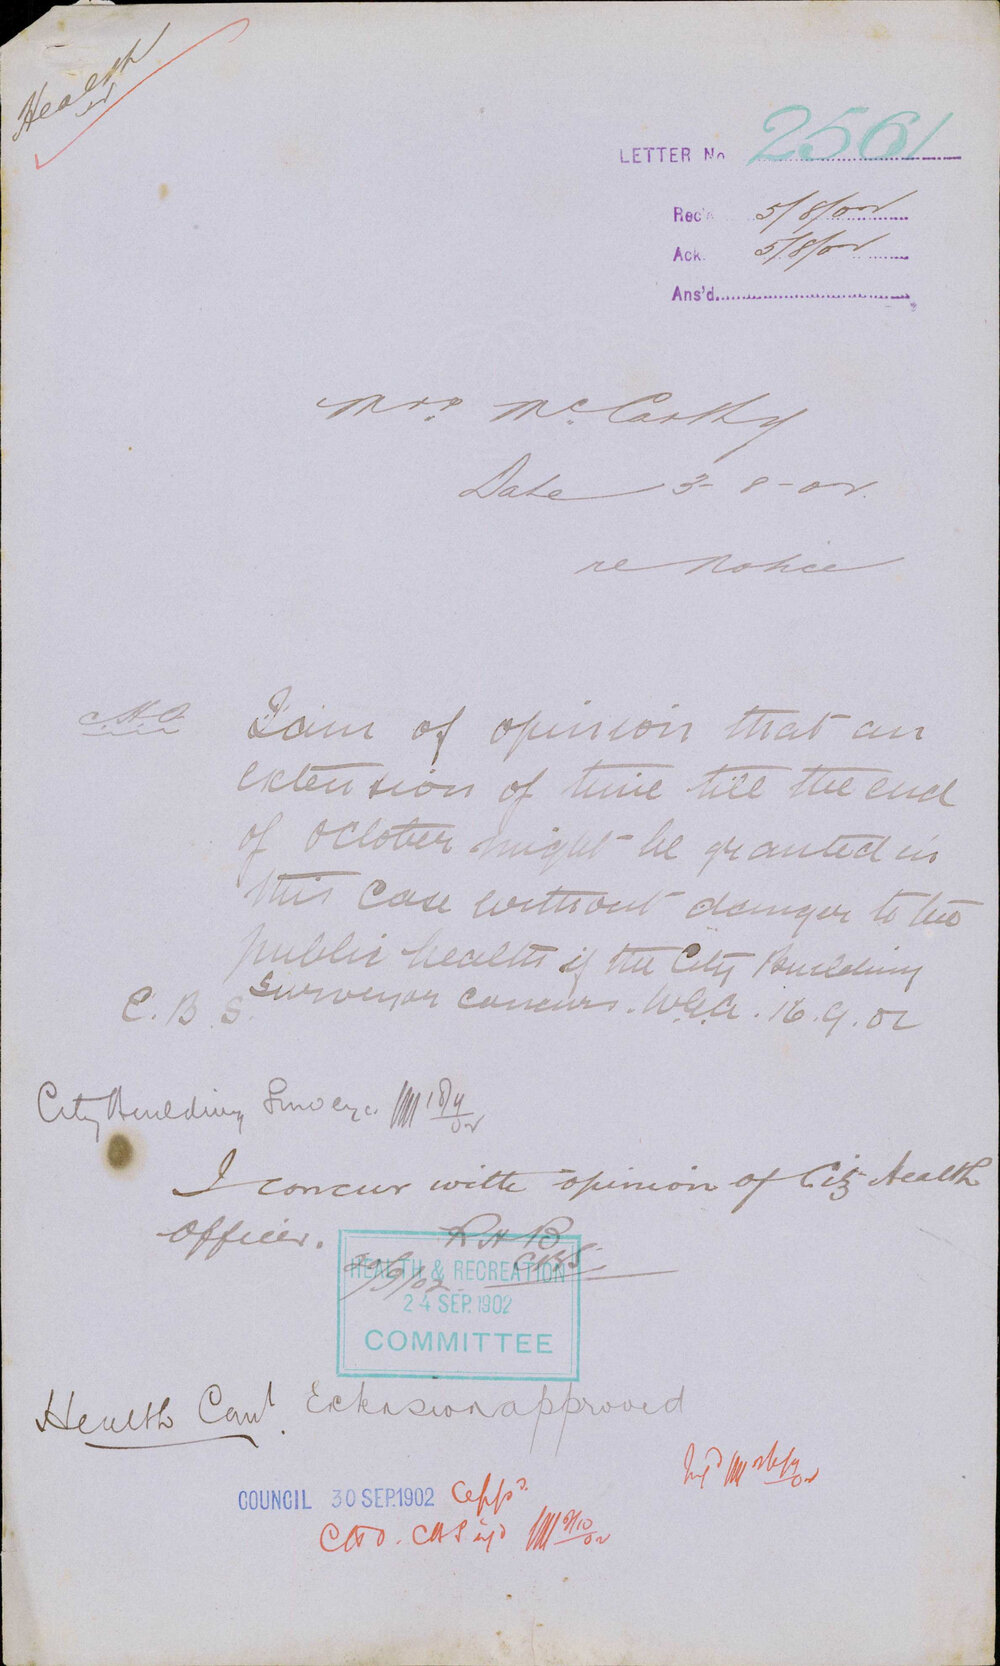 Health
LETTER No 2561
Rec'd 5/8/02
Ack. 5/8/02
Ans'd
Mrs. McCarthy
Date 3-8-02.
re Notice
C.H.O.
I am of opinion that an
extension of time till the end
of October might be granted in
this case without danger to the
public health if the City Building
Surveyor concurs. W.G.A. 16.9.02
C.B.S.
City Building Surveyor 18/9/02
I concur with opinion of City Health
Officer. R H B
CBS.
20/9/02
HEALTH & RECREATION
24 SEP. 1902
COMMITTEE
Health Comt. Extension approved
Inf'd 26/9/02
COUNCIL 30 SEP. 1902 Appd.
CHO. CBS inf'd 2/10/02